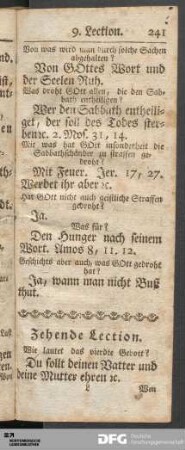 9. Lection. 241
Von was wird man durch solche Sachen
abgehalten?
Von GOttes Wort und
der Seelen Ruh.
Was droht GOtt allen, die den Sab-
bath entheiligen?
Wer den Sabbath entheili-
get, der soll des Todes ster-
ben ꝛc. 2. Mos. 31, 14.
Mit was hat GOtt insonderheit die
Sabbathschänder zu straffen ge-
droht?
Mit Feuer. Jer. 17, 27.
Werdet ihr aber ꝛc.
Hat GOtt nicht auch geistliche Straffen
gedroht?
Ja.
Was für?
Den Hunger nach seinem
Wort. Amos 8, 11. 12.
Geschichts aber auch was GOtt gedroht
hat?
Ja, wann man nicht Buß
thut.
Zehende Lection.
Wie lautet das vierdte Gebott?
Du sollt deinen Vatter und
deine Mutter ehren ꝛc.
L Von
DFG Deutsche
Forschungsgemeinschaft